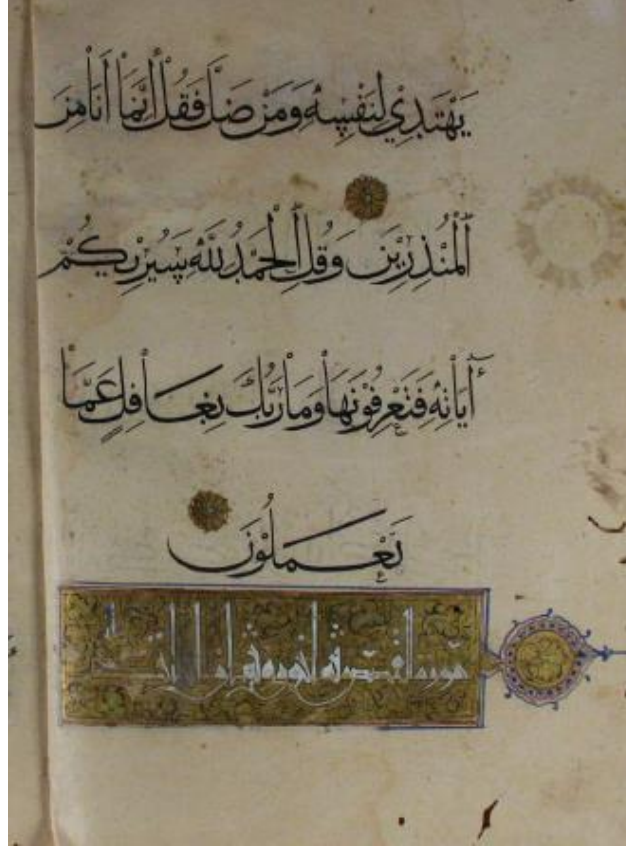 يَهْتَدِيْ لِنَفْسِهٖ وَمَنْ ضَلَّ فَقُلْ اَنَّمَاْ اَنَاْ مِنَ
اَلْمُنْذِرِيْنَ وَقُلِ اَلْحَمْدُ لِلّٰهِ سَيُرِيْكُمْ
اٰيَاْتِهٖ فَتَعْرِفُوْنَهَاْ وَمَاْ رَبُّكَ بِغَاْفِلٍ عَمَّاْ
تَعْمَلُوْنَ
سورة القصص